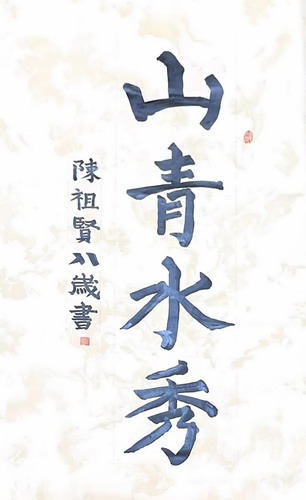 山青水秀
陳祖賢八歲書